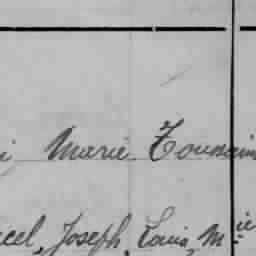 i Marie Toussain
cel, Joseph, Louis, M.ie